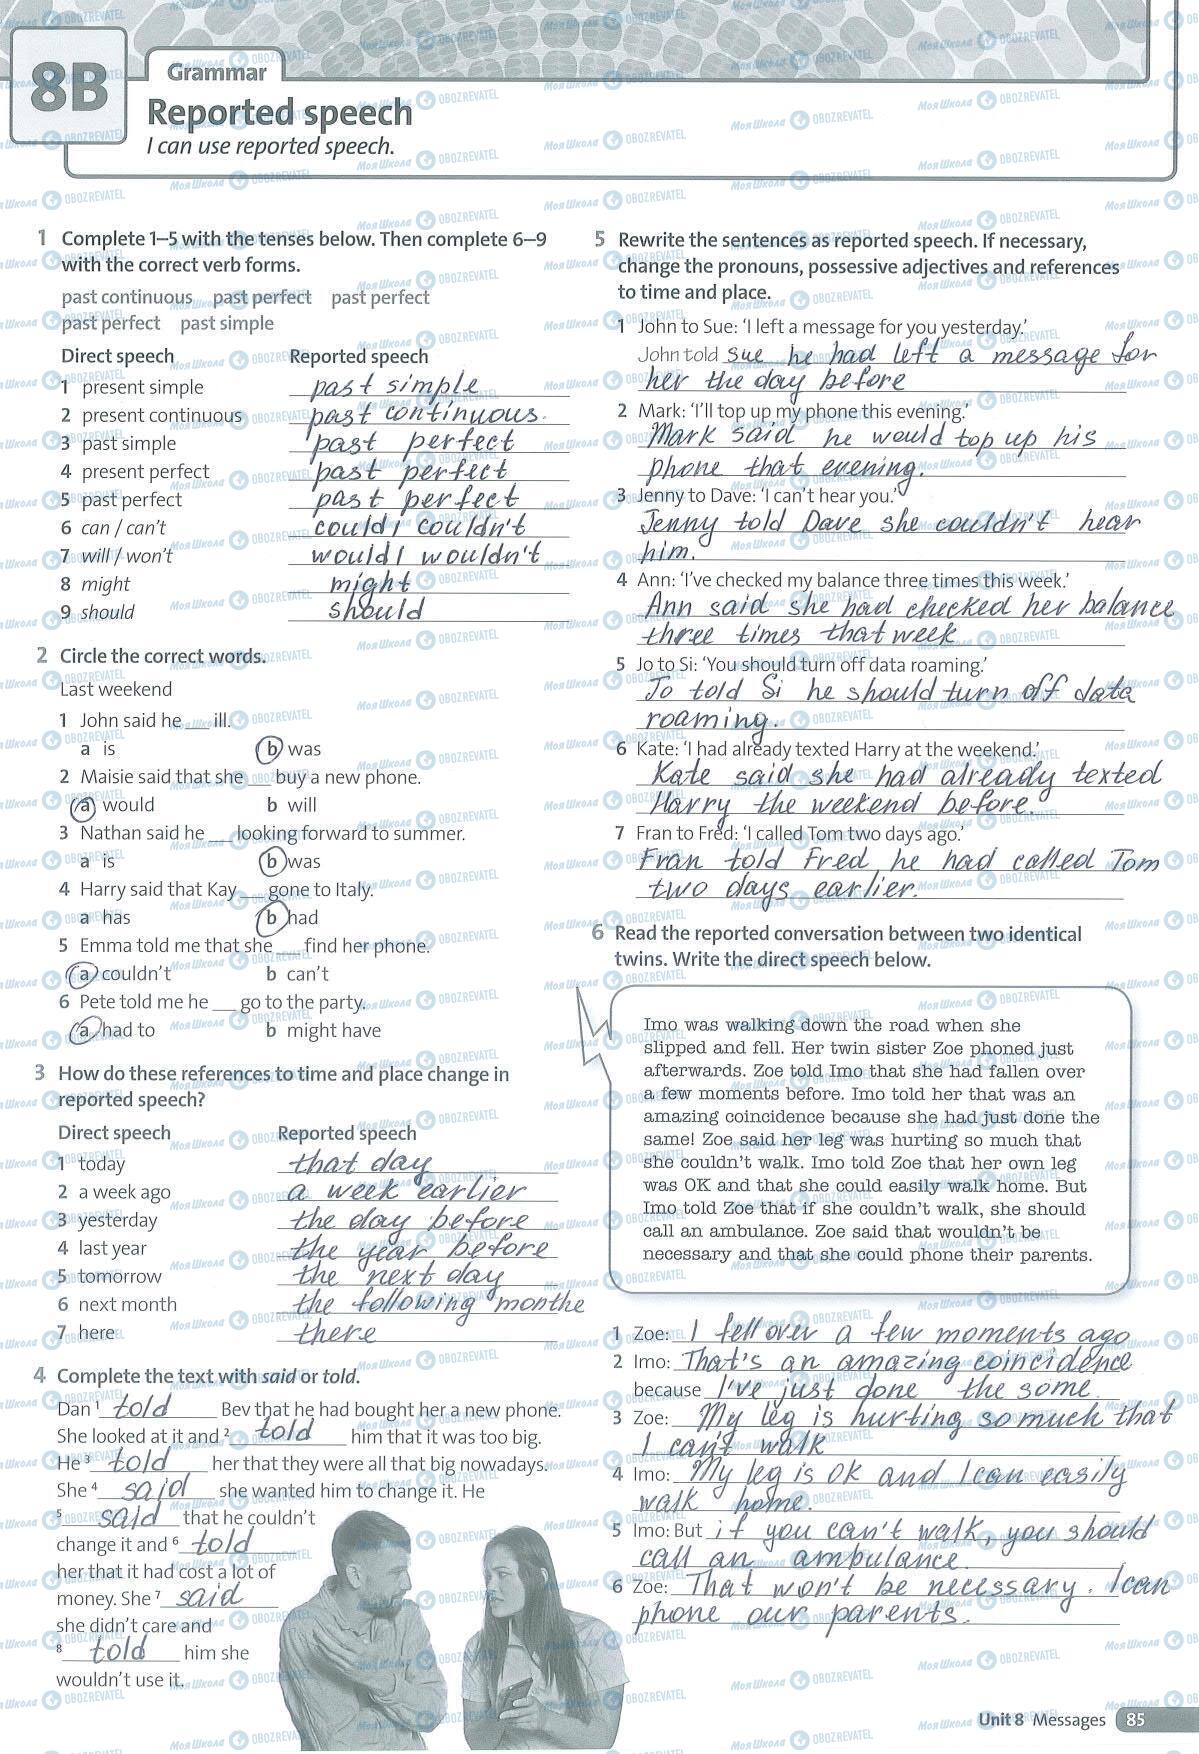 8B
Grammar
Reported speech
I can use reported speech.
1 Complete 1–5 with the tenses below. Then complete 6–9
with the correct verb forms.
past continuous past perfect past perfect
past perfect past simple
Direct speech Reported speech
1 present simple past simple
2 present continuous past continuous.
3 past simple past perfect
4 present perfect past perfect
5 past perfect past perfect
6 can / can't could / couldn't
7 will / won't would / wouldn't
8 might might
9 should should
2 Circle the correct words.
Last weekend
1 John said he ___ ill.
a is b was
2 Maisie said that she ___ buy a new phone.
a would b will
3 Nathan said he ___ looking forward to summer.
a is b was
4 Harry said that Kay ___ gone to Italy.
a has b had
5 Emma told me that she ___ find her phone.
a couldn't b can't
6 Pete told me he ___ go to the party.
a had to b might have
3 How do these references to time and place change in
reported speech?
Direct speech Reported speech
1 today that day
2 a week ago a week earlier
3 yesterday the day before
4 last year the year before
5 tomorrow the next day
6 next month the following monthe
7 here there
4 Complete the text with said or told.
Dan 1 told Bev that he had bought her a new phone.
She looked at it and 2 told him that it was too big.
He 3 told her that they were all that big nowadays.
She 4 said she wanted him to change it. He
5 said that he couldn't
change it and 6 told
her that it had cost a lot of
money. She 7 said
she didn't care and
8 told him she
wouldn't use it.
5 Rewrite the sentences as reported speech. If necessary,
change the pronouns, possessive adjectives and references
to time and place.
1 John to Sue: 'I left a message for you yesterday.'
John told sue he had left a message for
her the day before
2 Mark: 'I'll top up my phone this evening.'
Mark said he would top up his
phone that evening.
3 Jenny to Dave: 'I can't hear you.'
Jenny told Dave she couldn't hear
him.
4 Ann: 'I've checked my balance three times this week.'
Ann said she had checked her balance
three times that week
5 Jo to Si: 'You should turn off data roaming.'
Jo told Si he should turn off data
roaming.
6 Kate: 'I had already texted Harry at the weekend.'
Kate said she had already texted
Harry the weekend before.
7 Fran to Fred: 'I called Tom two days ago.'
Fran told Fred he had called Tom
two days earlier.
6 Read the reported conversation between two identical
twins. Write the direct speech below.
Imo was walking down the road when she
slipped and fell. Her twin sister Zoe phoned just
afterwards. Zoe told Imo that she had fallen over
a few moments before. Imo told her that was an
amazing coincidence because she had just done the
same! Zoe said her leg was hurting so much that
she couldn't walk. Imo told Zoe that her own leg
was OK and that she could easily walk home. But
Imo told Zoe that if she couldn't walk, she should
call an ambulance. Zoe said that wouldn't be
necessary and that she could phone their parents.
1 Zoe: I fell over a few moments ago
2 Imo: That's an amazing coincidence
because I've just done the some.
3 Zoe: My leg is hurting so much that
I can't walk
4 Imo: My leg is OK and I can easily
walk home.
5 Imo: But if you can't walk, you should
call an ambulance.
6 Zoe: That won't be necessary. I can
phone our parents.
Unit 8 Messages 85
Моя Школа OBOZREVATEL